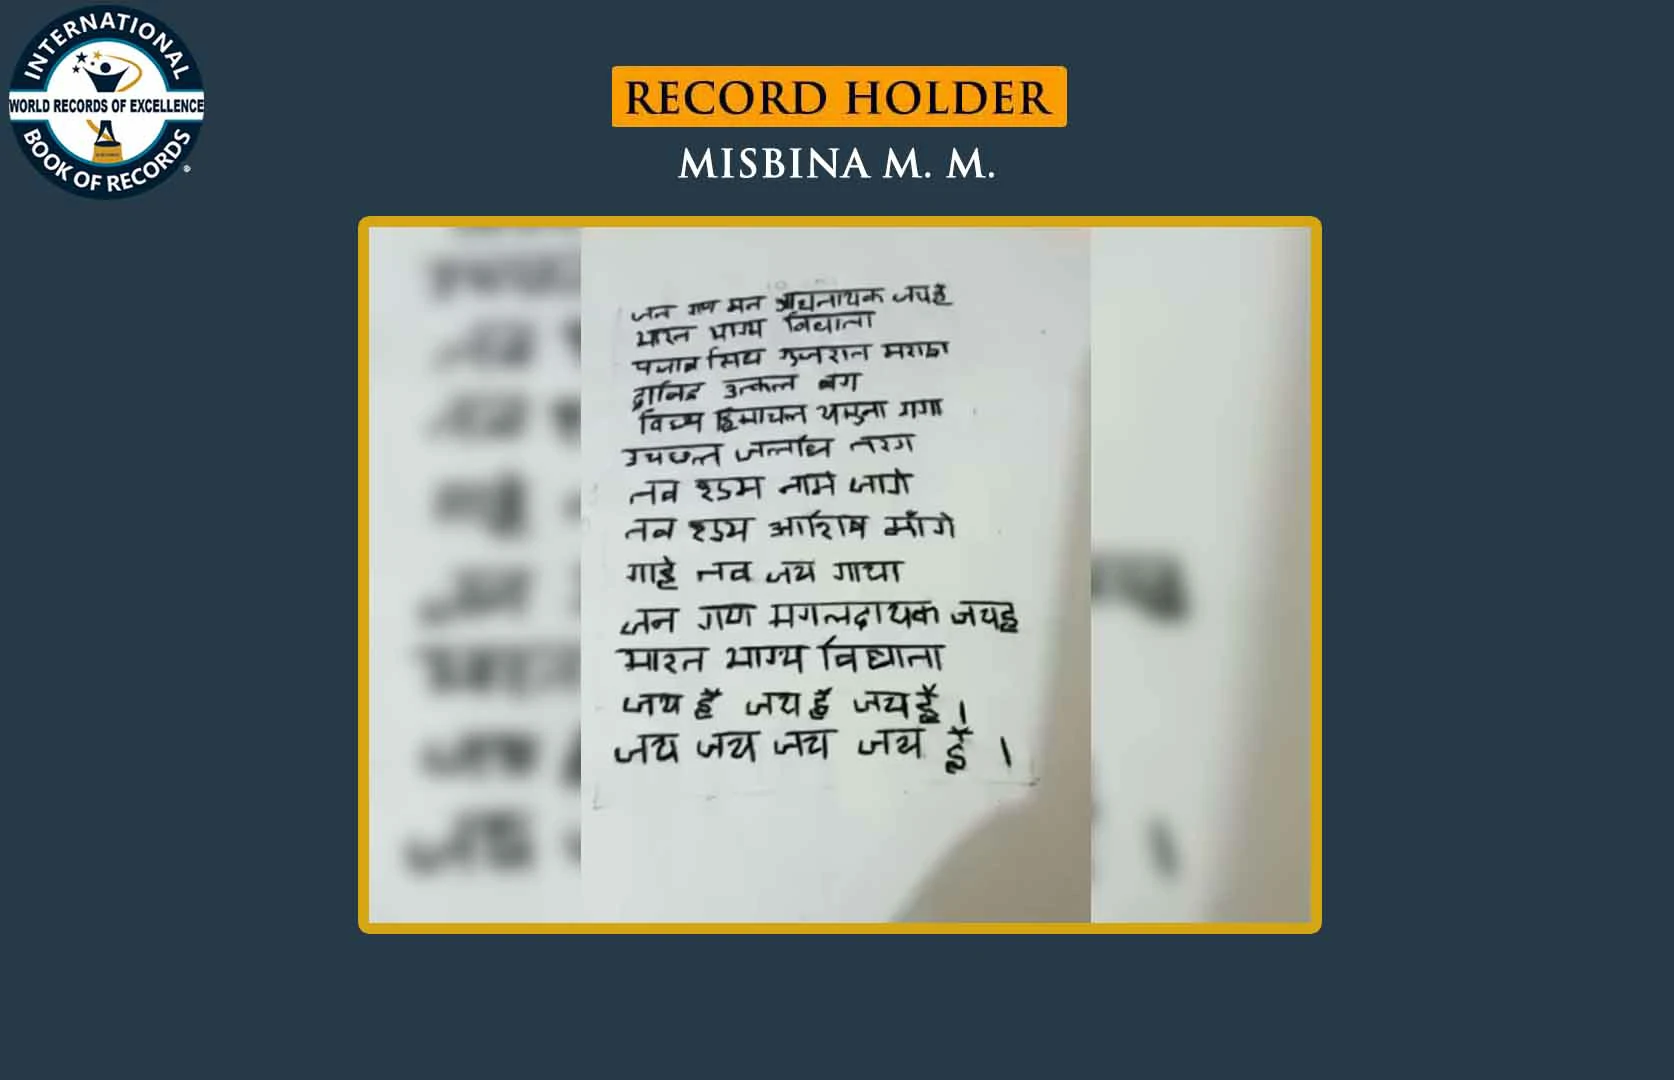 INTERNATIONAL
WORLD RECORDS OF EXCELLENCE
BOOK OF RECORDS
RECORD HOLDER
MISBINA M. M.
जन गण मन जयहे
भारत भाग्य विधाता
गुजरात मराठा
उत्कल बग
हिमाचल यमुना गगा
तरग
तव नामे जागे
तव आशिष माँगे
गाहे तव जय गाथा
जन गण मगलदायक जयहे
भारत भाग्य विधाता
जय हे जय हे जय हे ।
जय जय जय जय हे ।